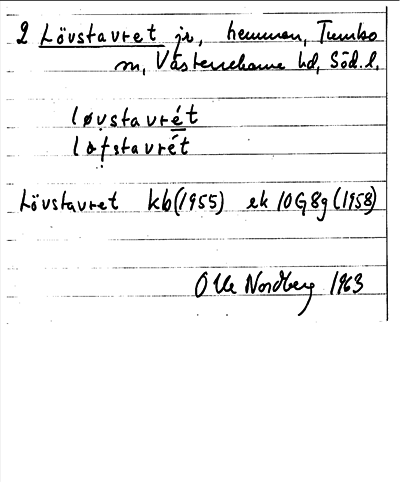 2 Lövstavret jr, hemman, Tumbo
sn, Västerrekarne hd, Söd.l.
løvstavrét
løfstavrét
Lövstavret kb(1955) ek 10G8g(1958)
Olle Nordberg 1963